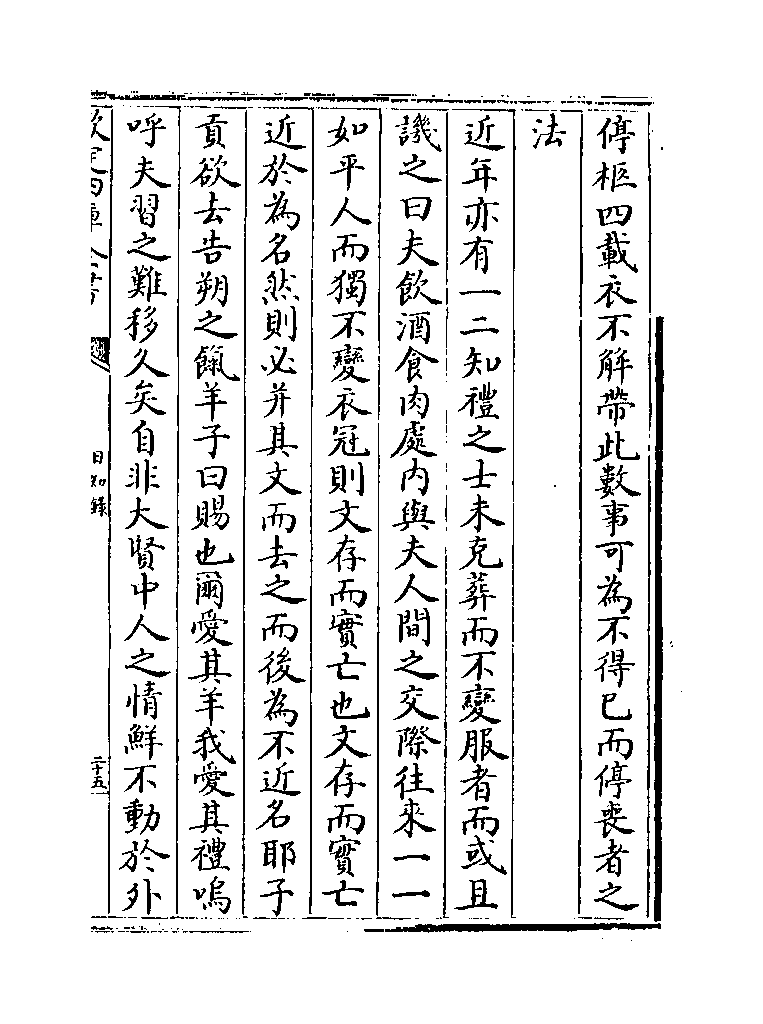 停柩四載衣不解帶此數事可為不得已而停喪者之
法
近年亦有一二知禮之士未克葬而不變服者而或且
譏之曰夫飲酒食肉處内與夫人間之交際往來一一
如平人而獨不變衣冠則文存而實亡也文存而實亡
近於為名然則必并其文而去之而後為不近名耶子
貢欲去告朔之餼羊子曰賜也爾愛其羊我愛其禮嗚
呼夫習之難移久矣自非大賢中人之情鮮不動於外
欽定四庫全書
日知錄
二十五